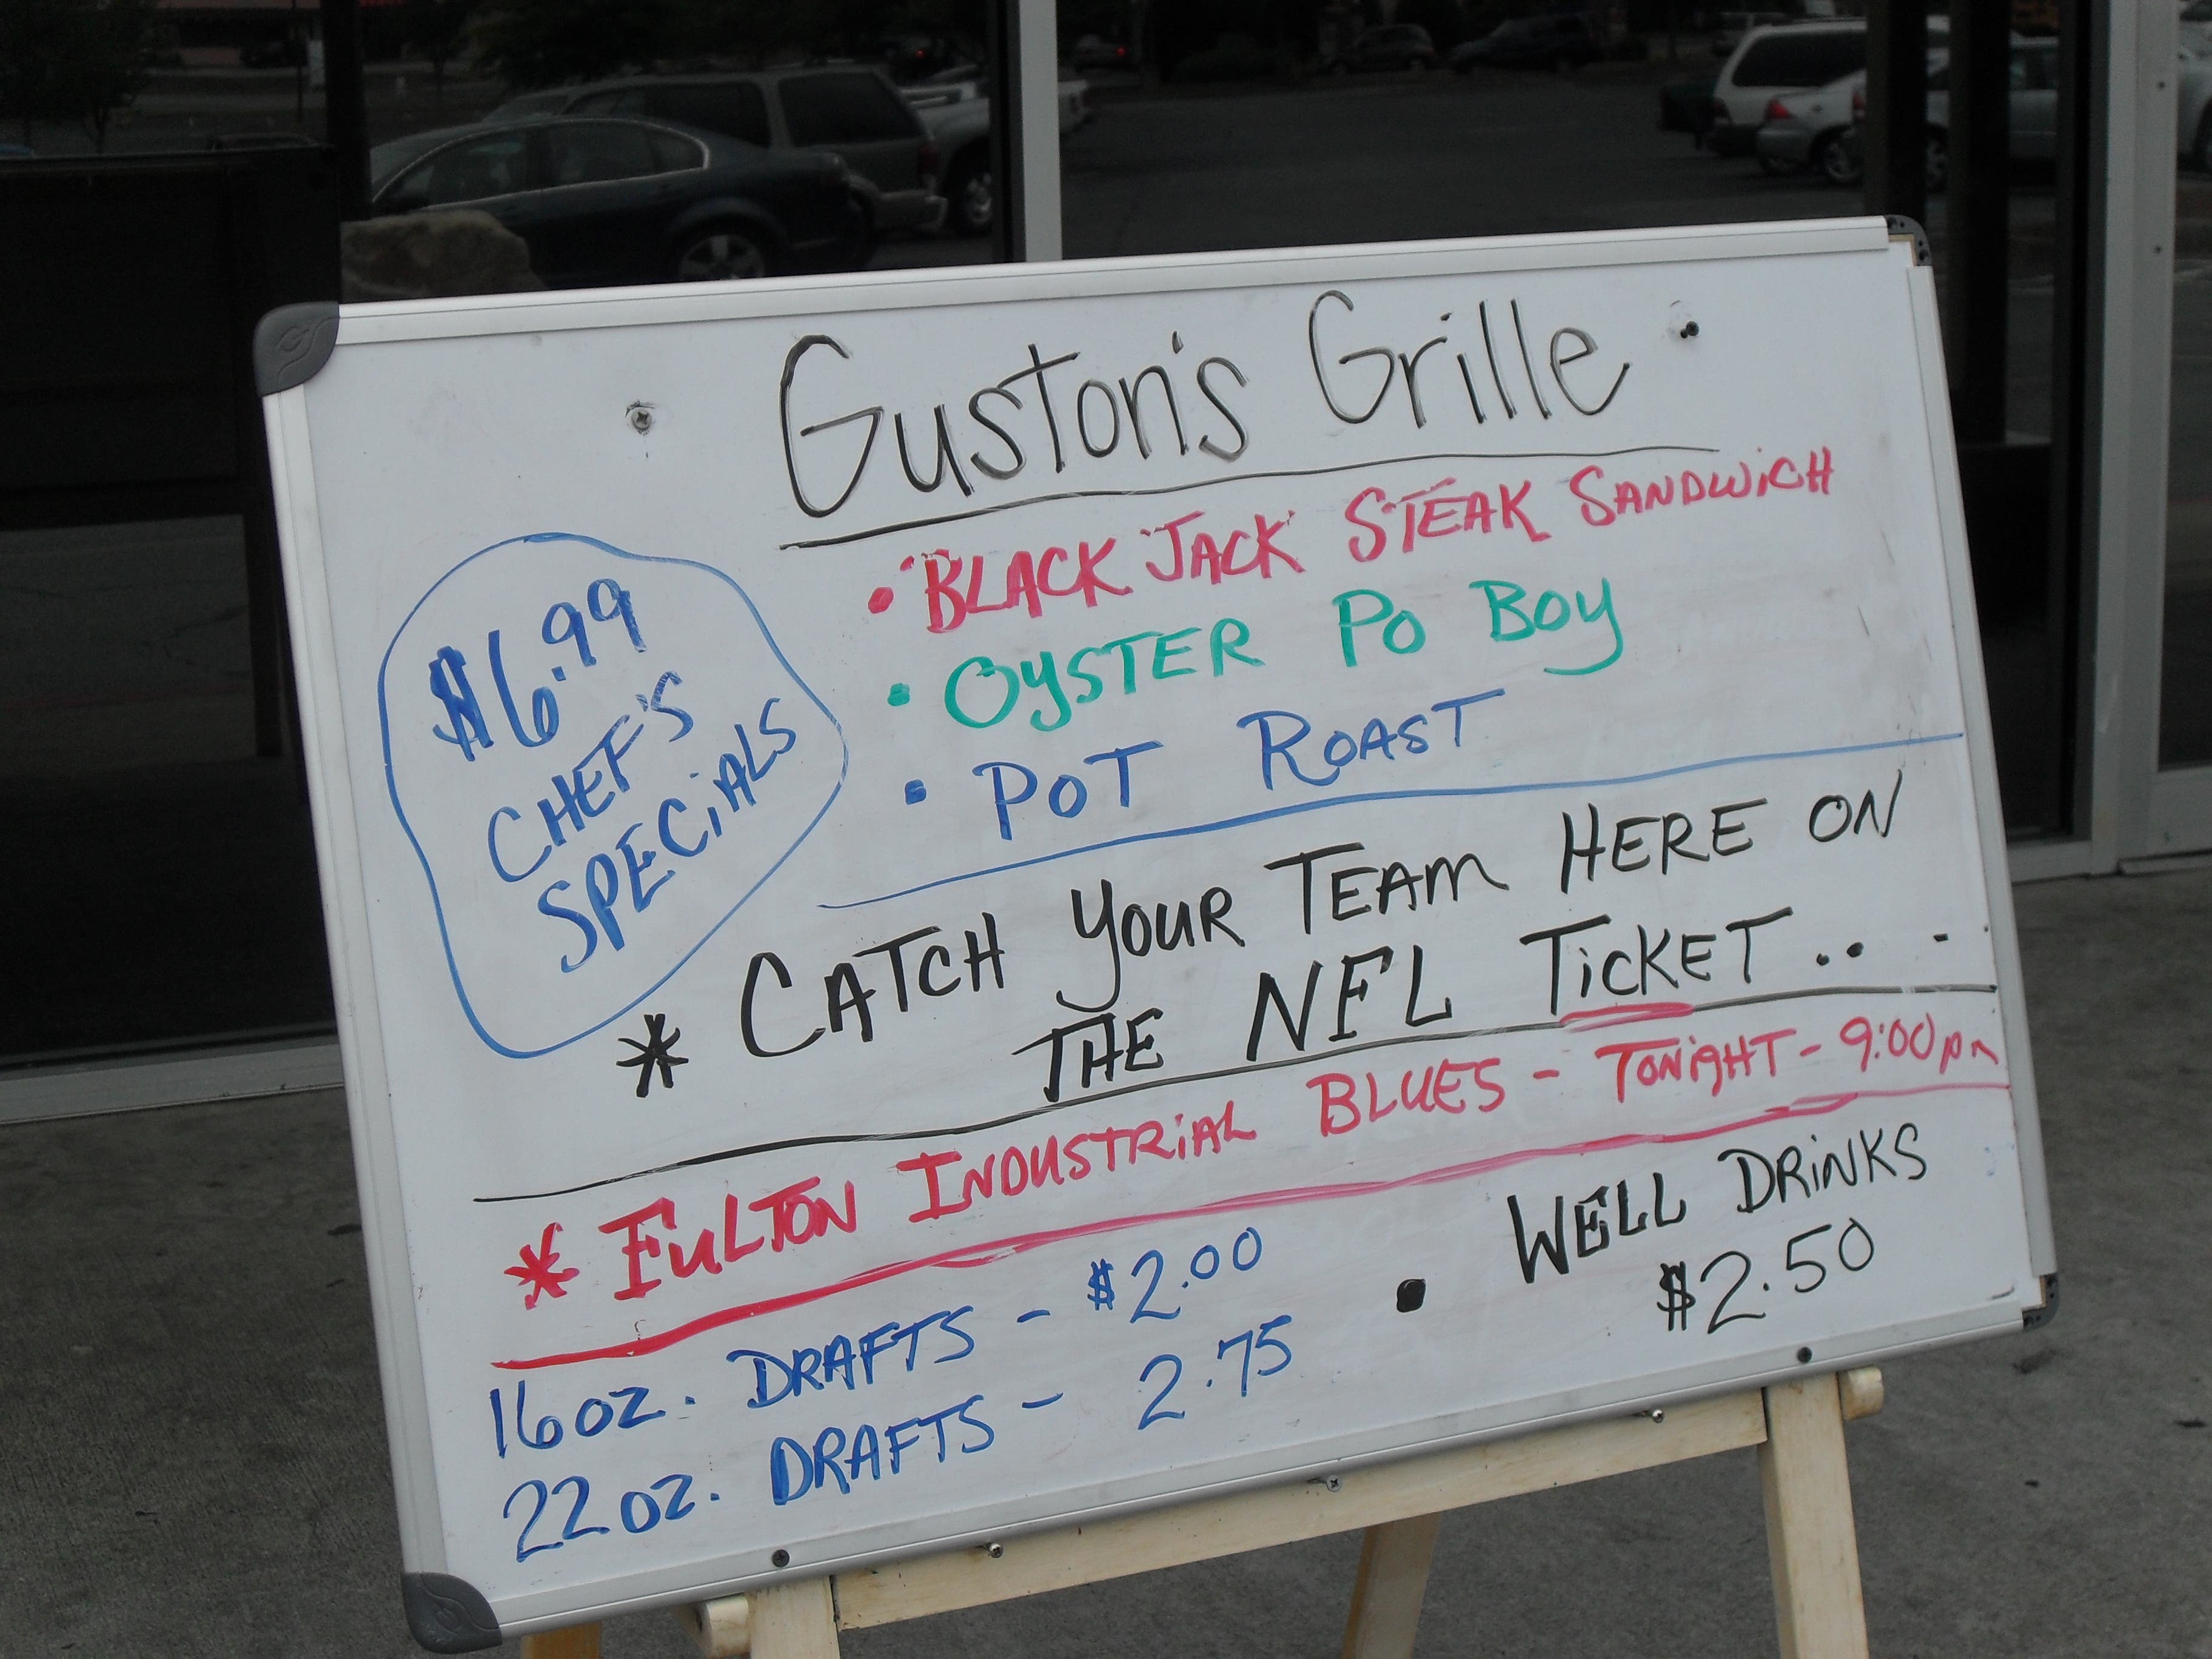 Guston's Grille
$6.99
CHEF'S
SPECiALS
• "BLACK JACK" STEAK SANDWiCH
• OYSTER PO BOY
• POT ROAST
* CATCH YOUR TEAM HERE ON
THE NFL TiCKET.. - .
* FULTON INDUSTRiAL BLUES - TONiGHT - 9:00pm
16 oz. DRAFTS - $2.00
22 oz. DRAFTS - 2.75
• WELL DRiNKS
$2.50